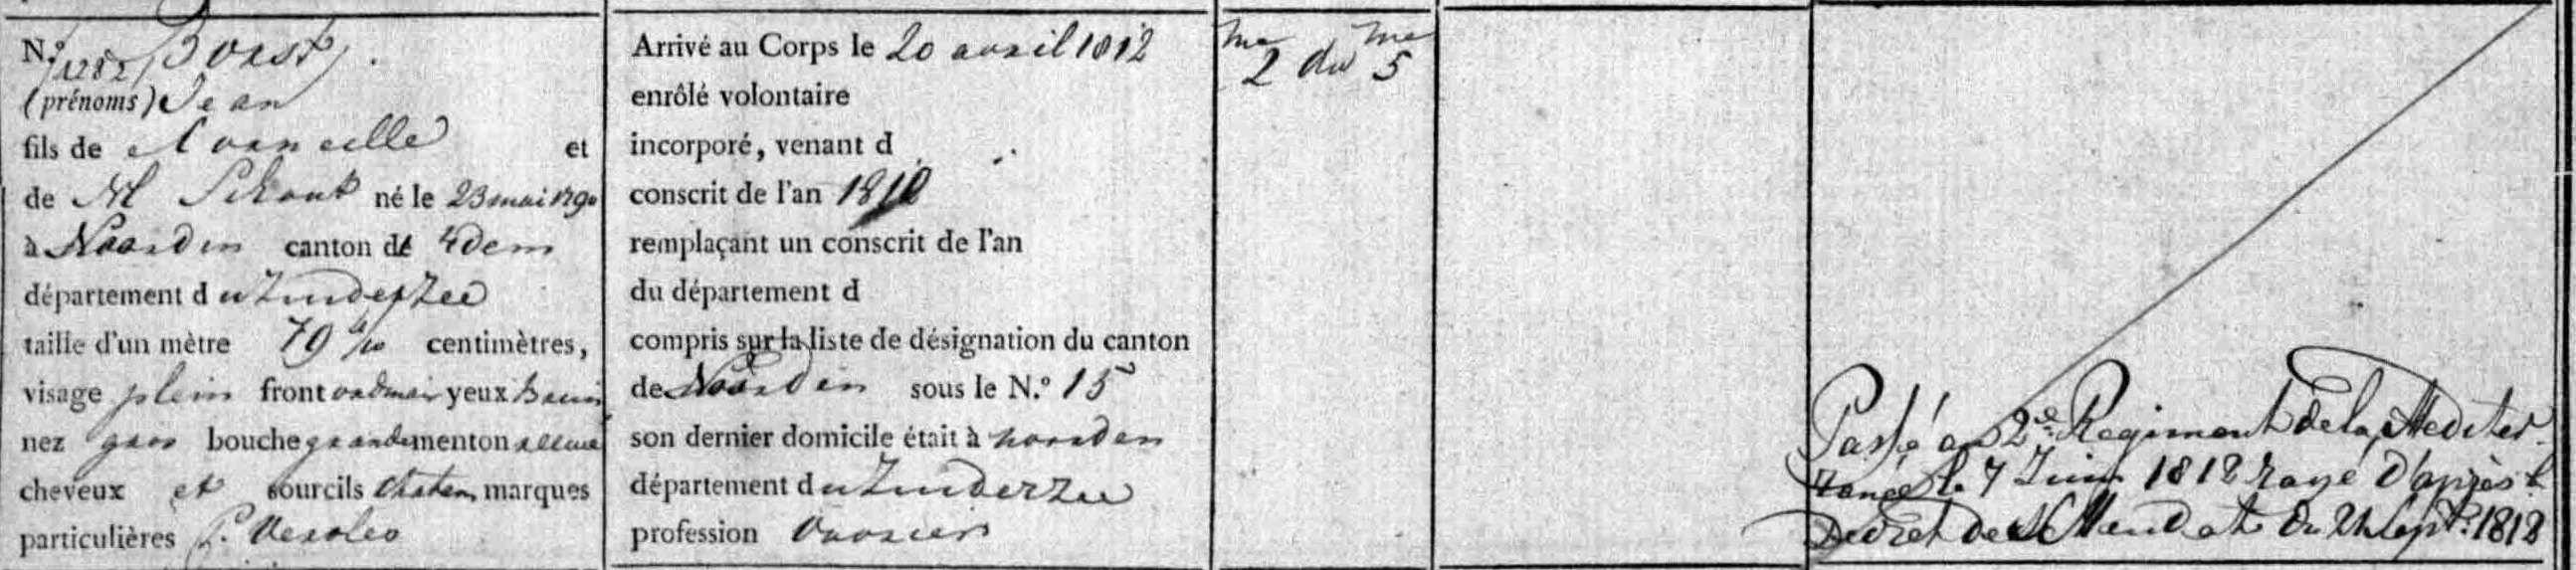 N.° 4282 Borst.
(prénoms) Jean
fils de Corneille et
de M Schout né le 23 mai 1790
à Naarden canton de idem
département du Zuiderzee
taille d'un mètre 79 4/10 centimètres,
visage plein front ordinair yeux bruns
nez gros bouche grande menton
cheveux et sourcils chatein, marques
particulières P. Veroles
Arrivé au Corps le 20 avril 1812
enrôlé volontaire
incorporé, venant d
conscrit de l'an 1810
remplaçant un conscrit de l'an
du département d
compris sur la liste de désignation du canton
de Naarden sous le N.° 15
son dernier domicile était à naarden
département du Zuiderzee
profession ouvrier
2me du 5me
Passé au 2e Regiment de la Mediter-
ranée le 7 Juin 1812 rayé d'après le
Decret de du 24 Sept. 1812